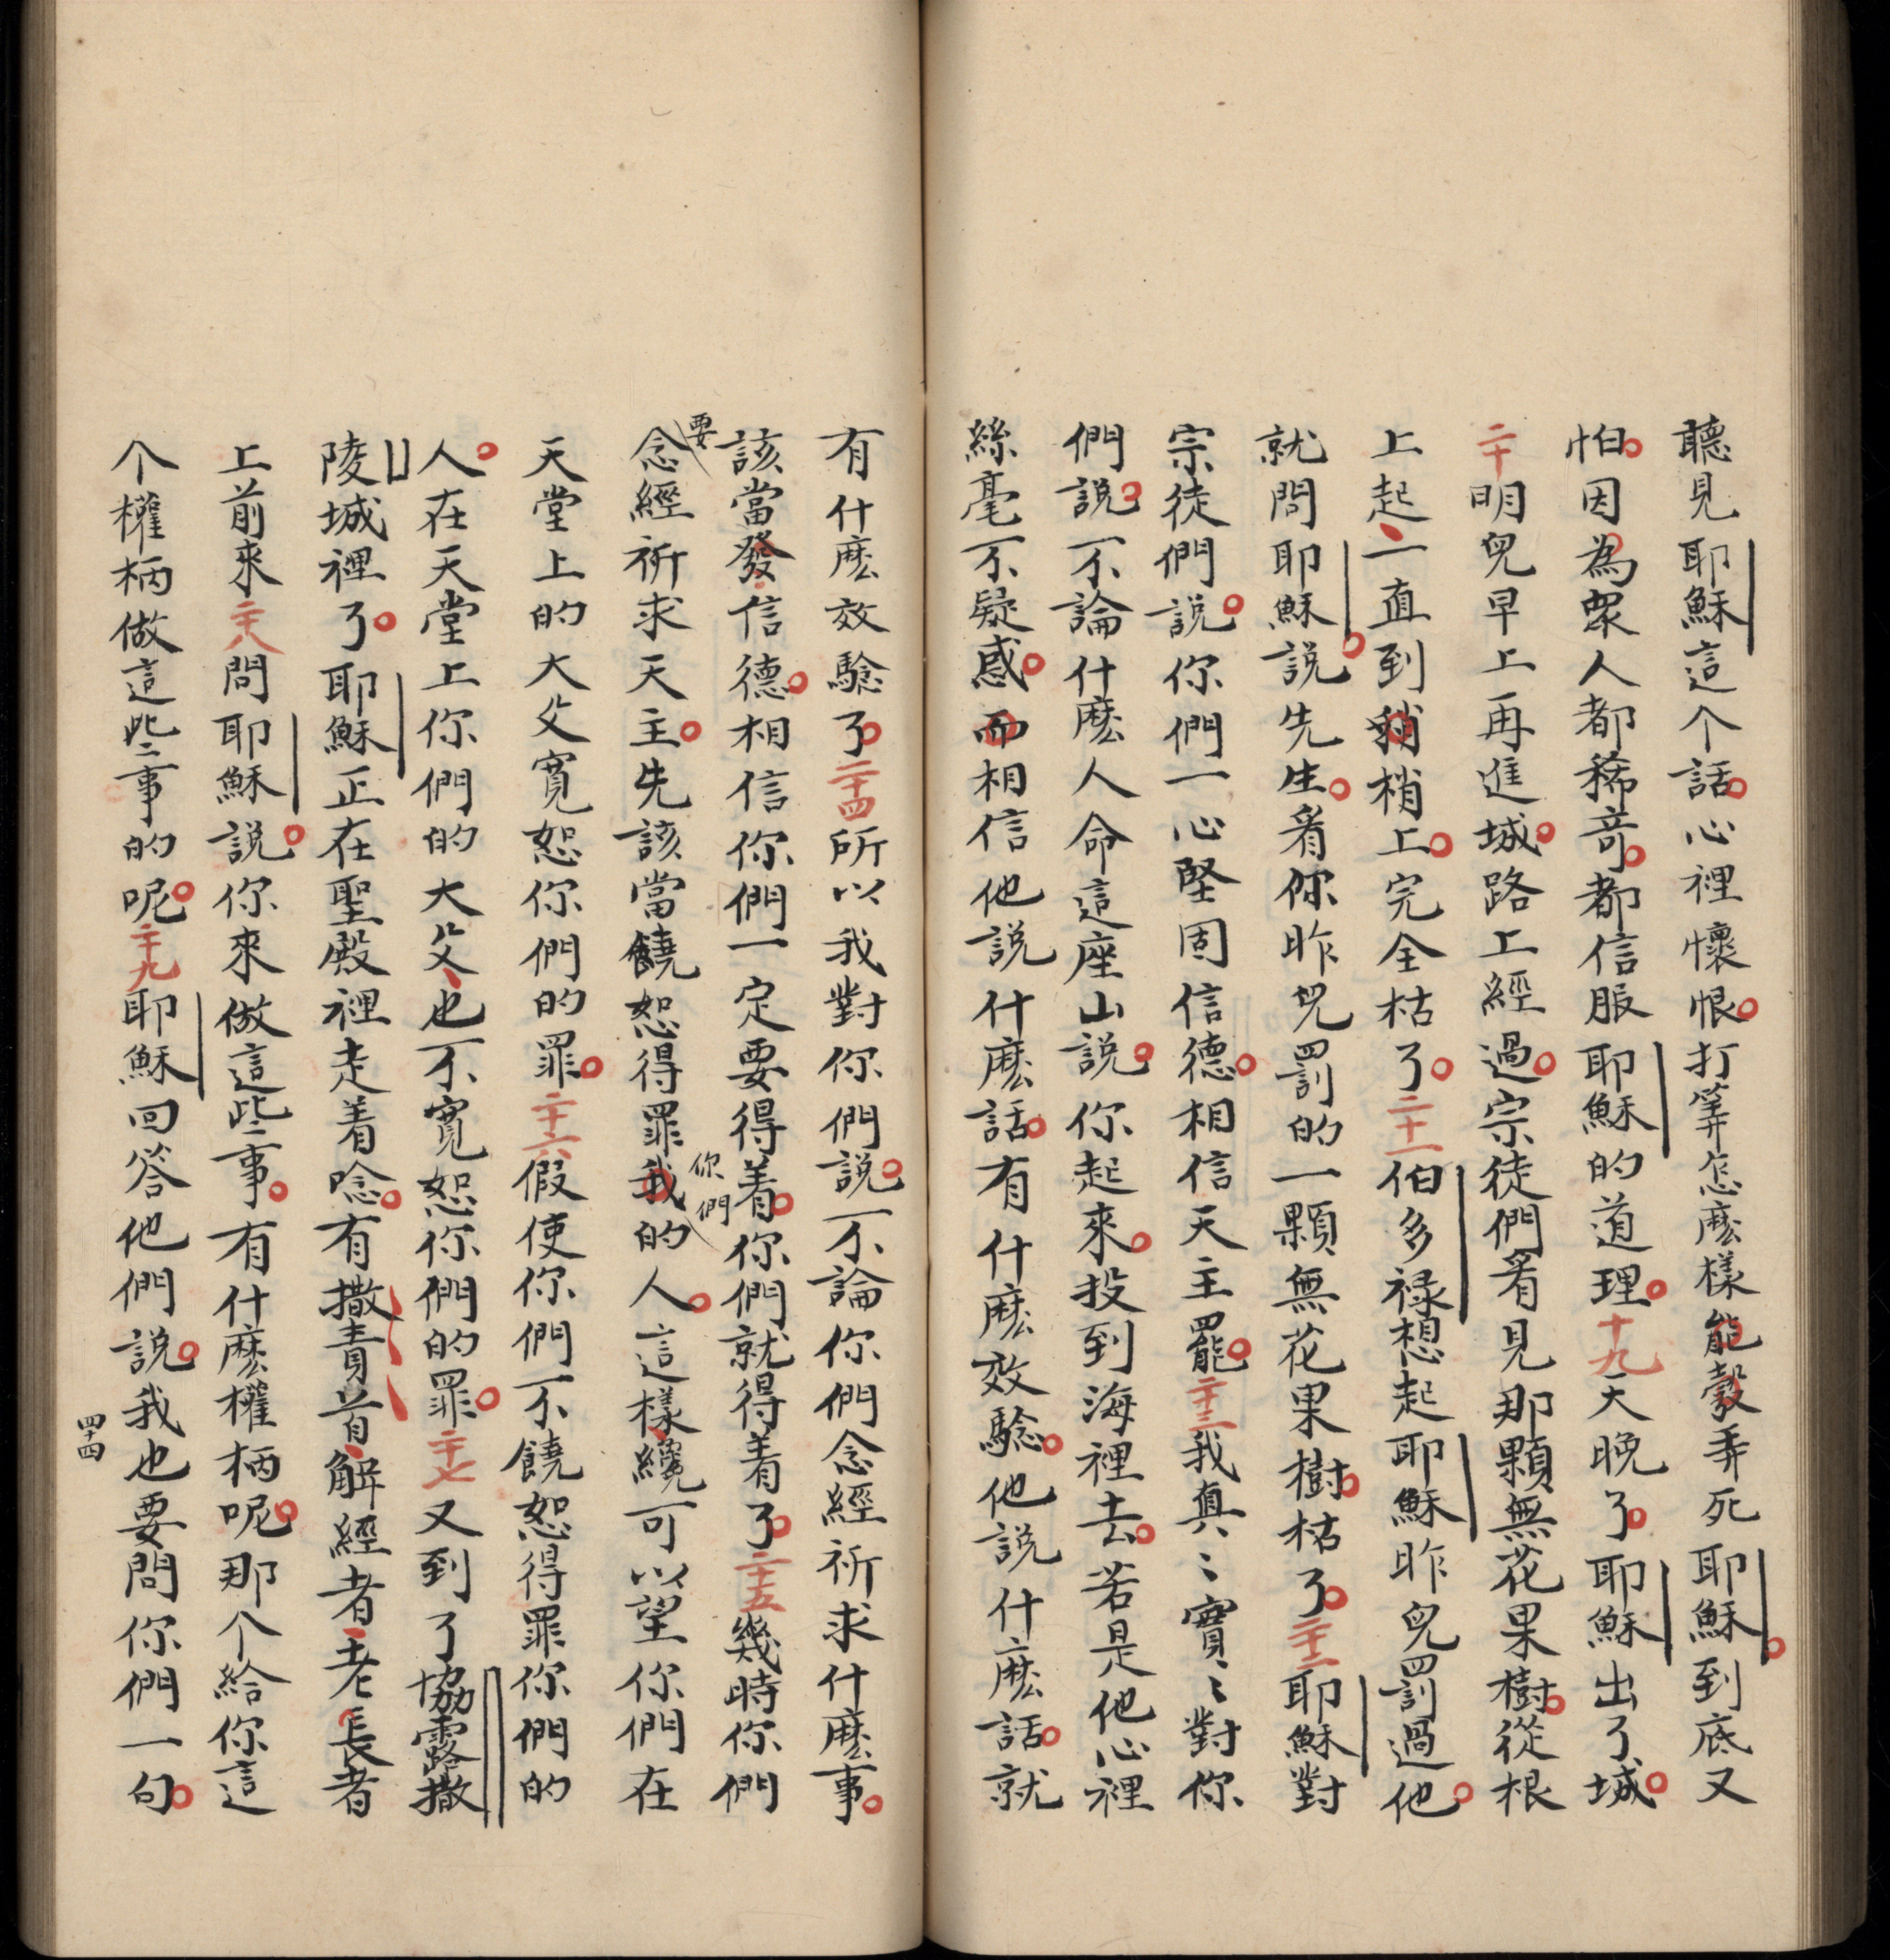 聽見耶穌這个話心裡懷恨打筭怎麽樣能彀弄死耶穌到底又
怕因為衆人都稀竒都信服耶穌的道理十九天晚了耶穌出了城
二十明兒早上再進城路上經過宗徒們㸔見那顆無花果樹從根
上起一直到稍梢上完全枯了二十一伯多禄想起耶穌昨兒罰過他
就問耶穌說先生㸔你昨兒罰的一顆無花果樹枯了二十二耶穌對
宗徒們説你們一心堅固信德相信天主罷二十三我真〻實〻對你
們説不論什麽人命這座山説你起來投到海裡去若是他心裡
絲毫不疑惑而相信他説什麽話有什麽效騐他説什麽話就
有什麽效騐了二十四所以我對你們説不論你們念經祈求什麽事
該當發信德相信你們一定要得着你們就得着了二十五幾時你們
要念經祈求天主先該當饒恕得罪我你們的人這樣纔可以望你們在
天堂上的大父寛恕你們的罪二十六假使你們不饒恕得罪你們的
人在天堂上你們的大父也不寛恕你們的罪二十七又到了協露撒
陵城裡了耶穌正在聖殿裡走着唸有撒責首解經者老長者
上前來二十八問耶穌説你來做這些事有什麽權柄呢那个給你這
个權柄做這些事的呢二十九耶穌回答他們説我也要問你們一句
四十四